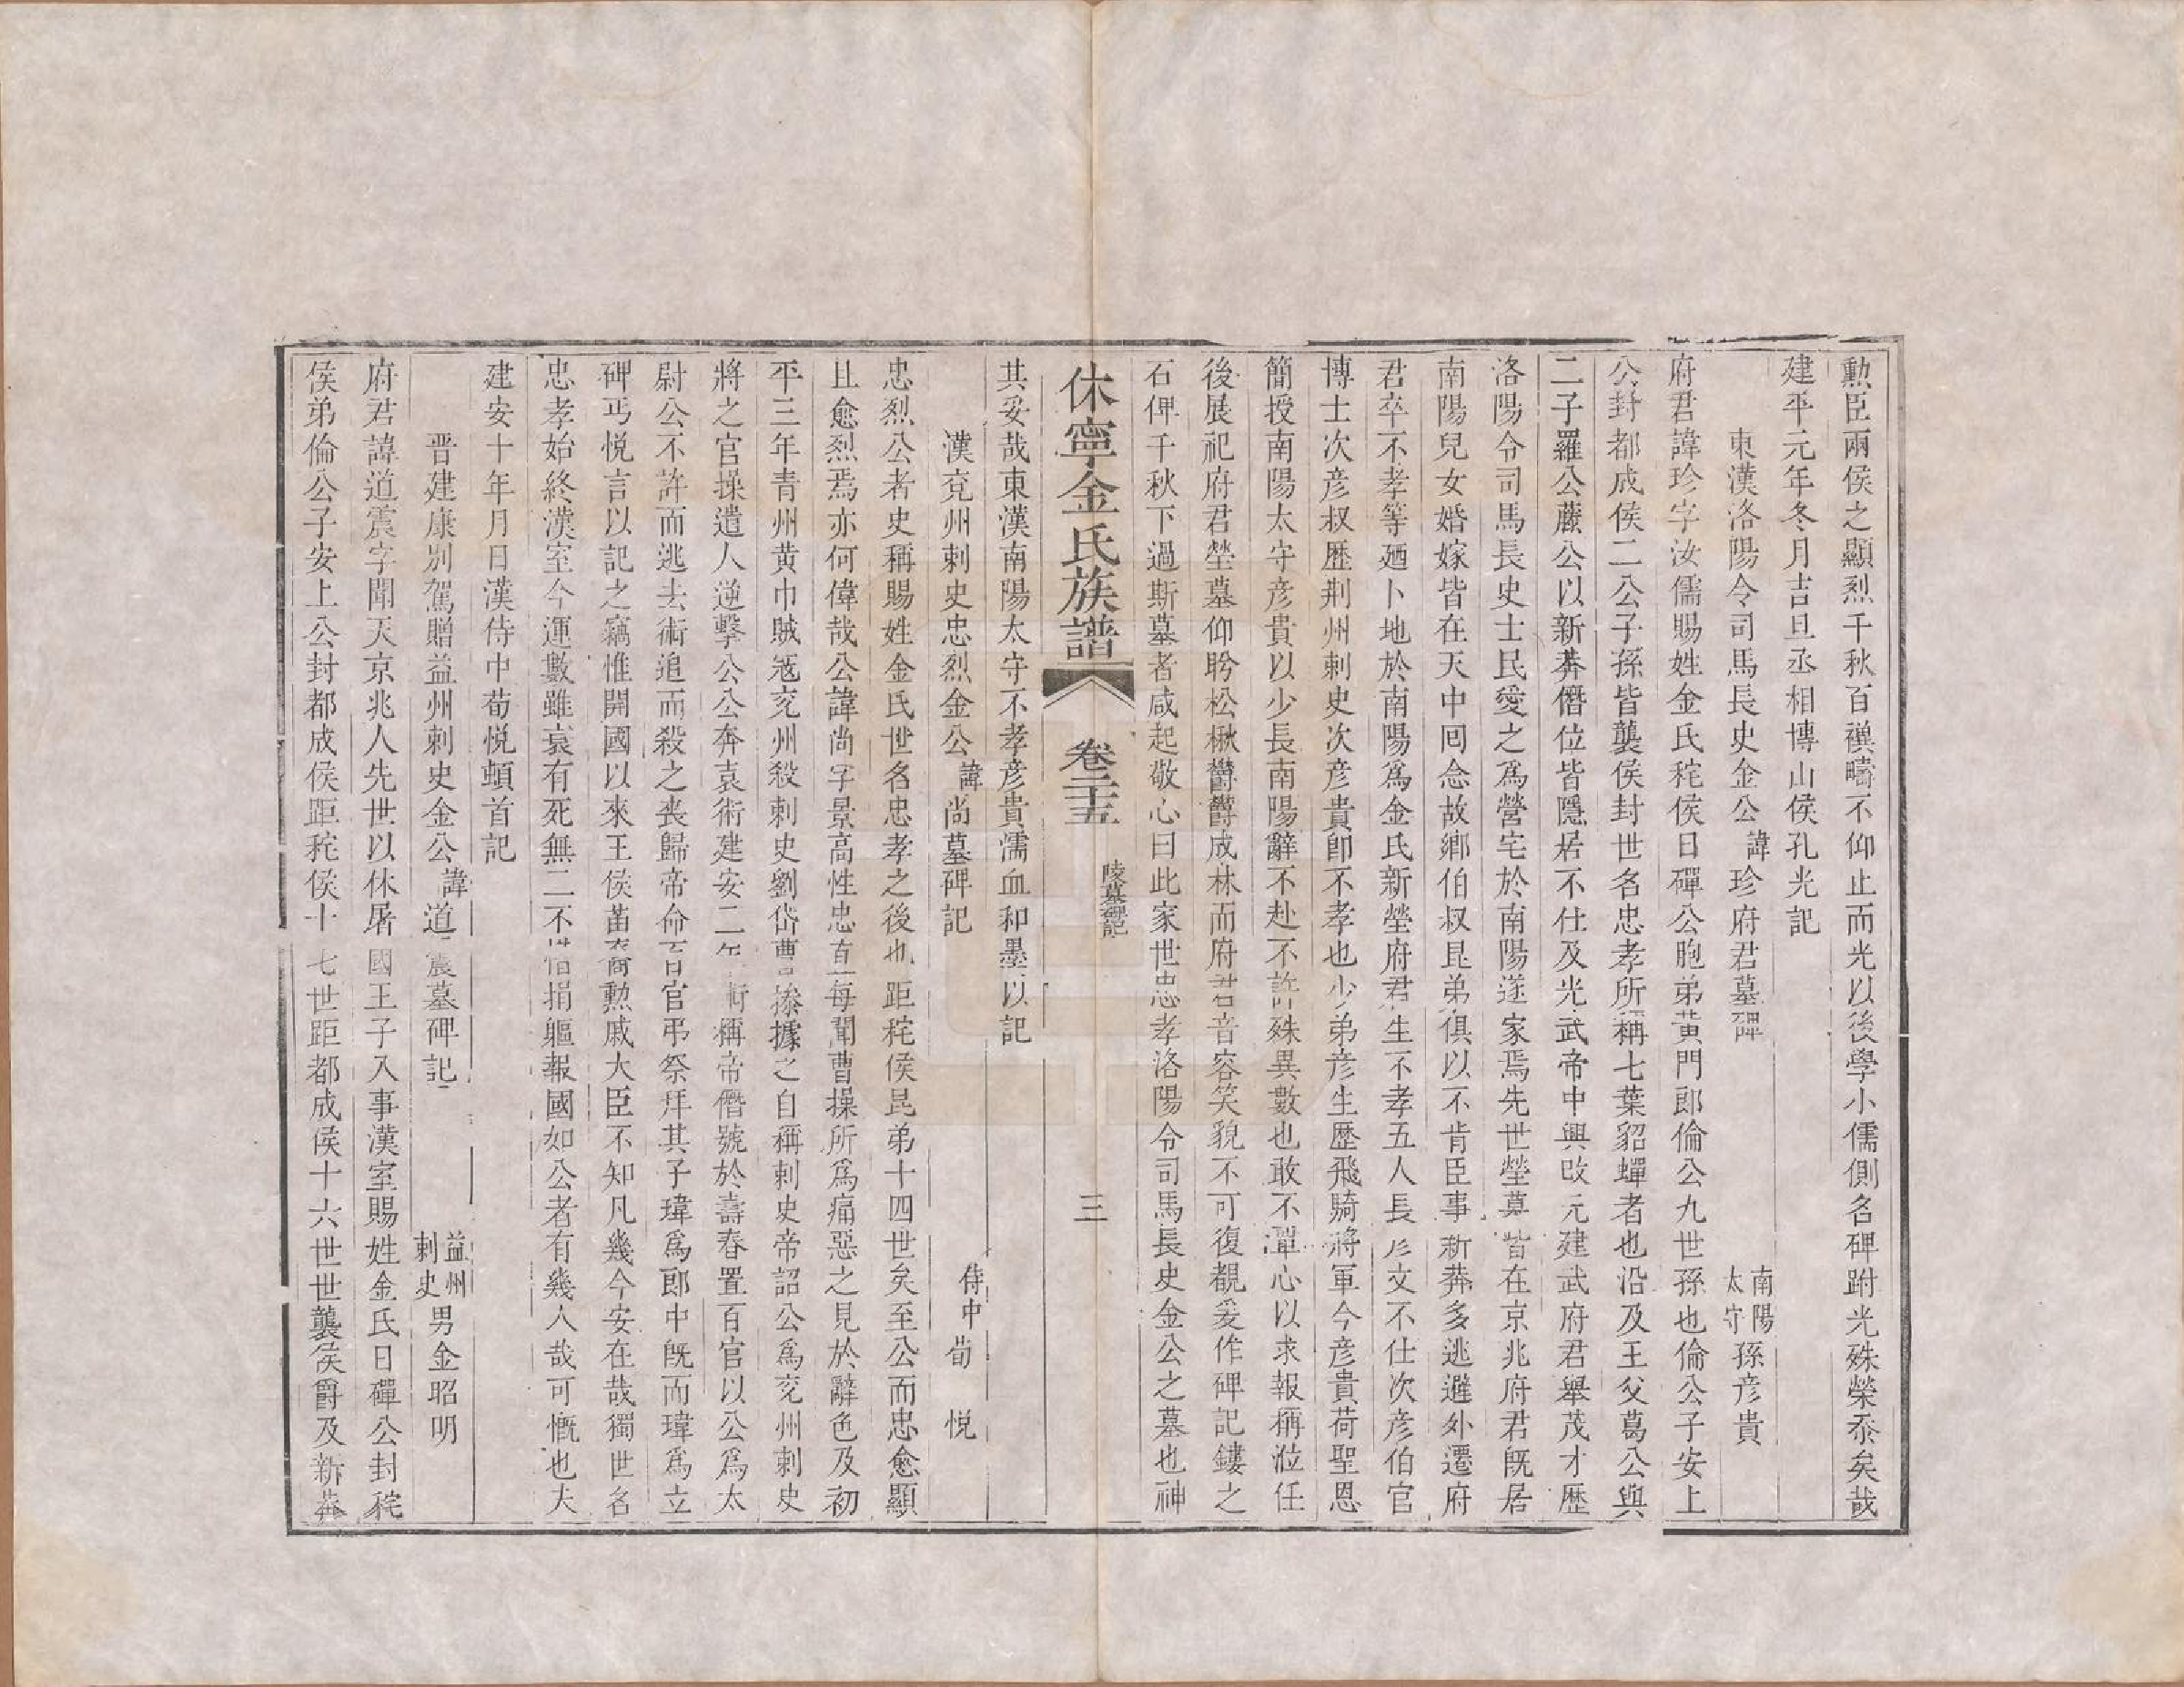 勲臣兩侯之顯烈千秋百禩疇不仰止而光以後學小儒側名碑跗光殊榮忝矣哉
建平元年冬月吉旦丞相博山侯孔光記
東漢洛陽令司馬長史金公諱珍府君墓碑 南陽太守孫彦貴
府君諱珍字汝儒賜姓金氏秺侯日磾公胞弟黄門郎倫公九世孫也倫公子安上
公封都成侯二公子孫皆襲侯封世名忠孝所稱七葉貂蟬者也沿及王父葛公與
二子羅公藤公以新莽僭位皆隱居不仕及光武帝中興改元建武府君舉茂才歷
洛陽令司馬長史士民愛之爲營宅於南陽遂家焉先世塋墓皆在京兆府君既居
南陽兒女婚嫁皆在天中囘念故鄉伯叔昆弟俱以不肯臣事新莽多逃避外遷府
君卒不孝等廼卜地於南陽爲金氏新塋府君生不孝五人長彦文不仕次彦伯官
博士次彦叔歴荆州刺史次彦貴即不孝也少弟彦生歷飛騎將軍今彦貴荷聖恩
簡授南陽太守彦貴以少長南陽辭不赴不許殊異數也敢不殫心以求報稱涖任
後展祀府君塋墓仰盻松楸欝欝成林而府君音容笑貌不可復覩爰作碑記鏤之
石俾千秋下過斯墓者咸起敬心曰此家世忠孝洛陽令司馬長史金公之墓也神
休寧金氏族譜 卷二十五 陵墓碑記 三
其妥哉東漢南陽太守不孝彦貴濡血和墨以記
漢兗州刺史忠烈金公諱尚墓碑記 侍中荀悦
忠烈公者史稱賜姓金氏世名忠孝之後也距秺侯昆弟十四世矣至公而忠愈顯
且愈烈焉亦何偉哉公諱尚字景高性忠直每聞曹操所爲痛惡之見於辭色及初
平三年青州黄巾賊寇兗州殺刺史劉岱曹操據之自稱刺史帝詔公爲兗州刺史
將之官操遣人逆擊公公奔袁術建安二年術稱帝僭號於壽春置百官以公爲太
尉公不許而逃去術追而殺之喪歸帝命百官弔祭拜其子瑋爲郎中既而瑋爲立
碑丐悦言以記之竊惟開國以來王侯苗裔勲戚大臣不知凡幾今安在哉獨世名
忠孝始終漢室今運數雖衰有死無二不惜捐軀報國如公者有幾人哉可慨也夫
建安十年月日漢侍中荀悦頓首記
晋建康别駕贈益州刺史金公諱道震墓碑記 益州刺史男金昭明
府君諱道震字聞天京兆人先世以休屠國王子入事漢室賜姓金氏日磾公封秺
侯弟倫公子安上公封都成侯距秺侯十七世距都成侯十六世世襲侯爵及新莽